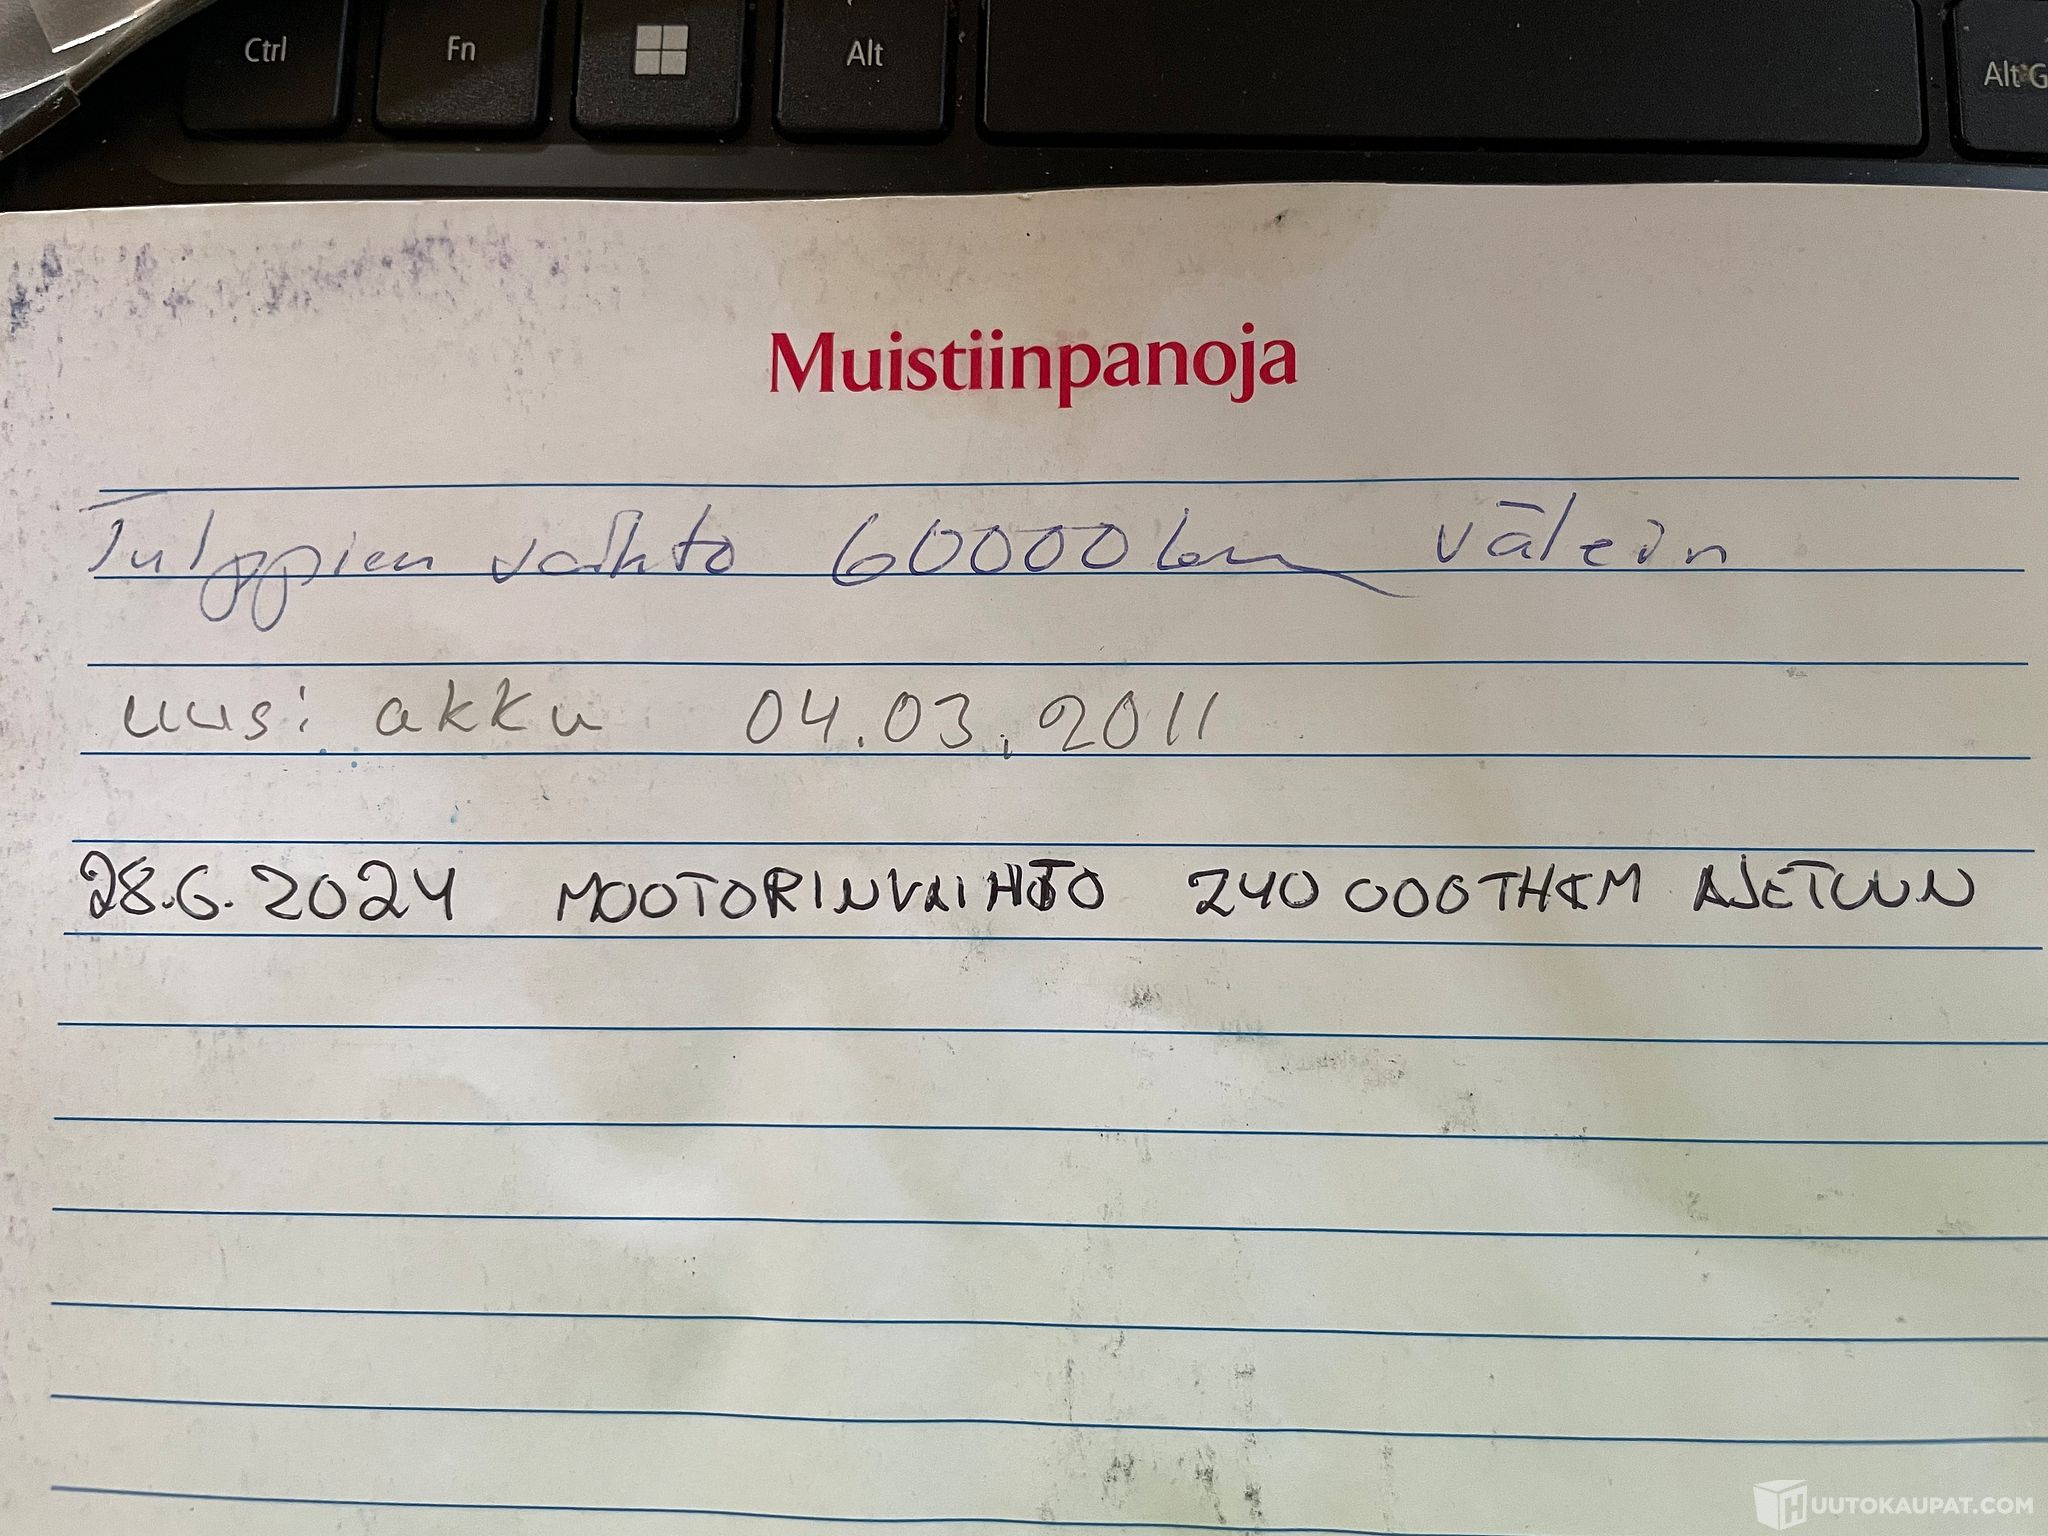 Ctrl Fn Alt Alt G
Muistiinpanoja
Tulppien vaihto 60000 km välein
uusi akku 04.03.2011
28.6.2024 MOOTORINVAIHTO 240 000THKM AJETUUN
HUUTOKAUPAT.COM